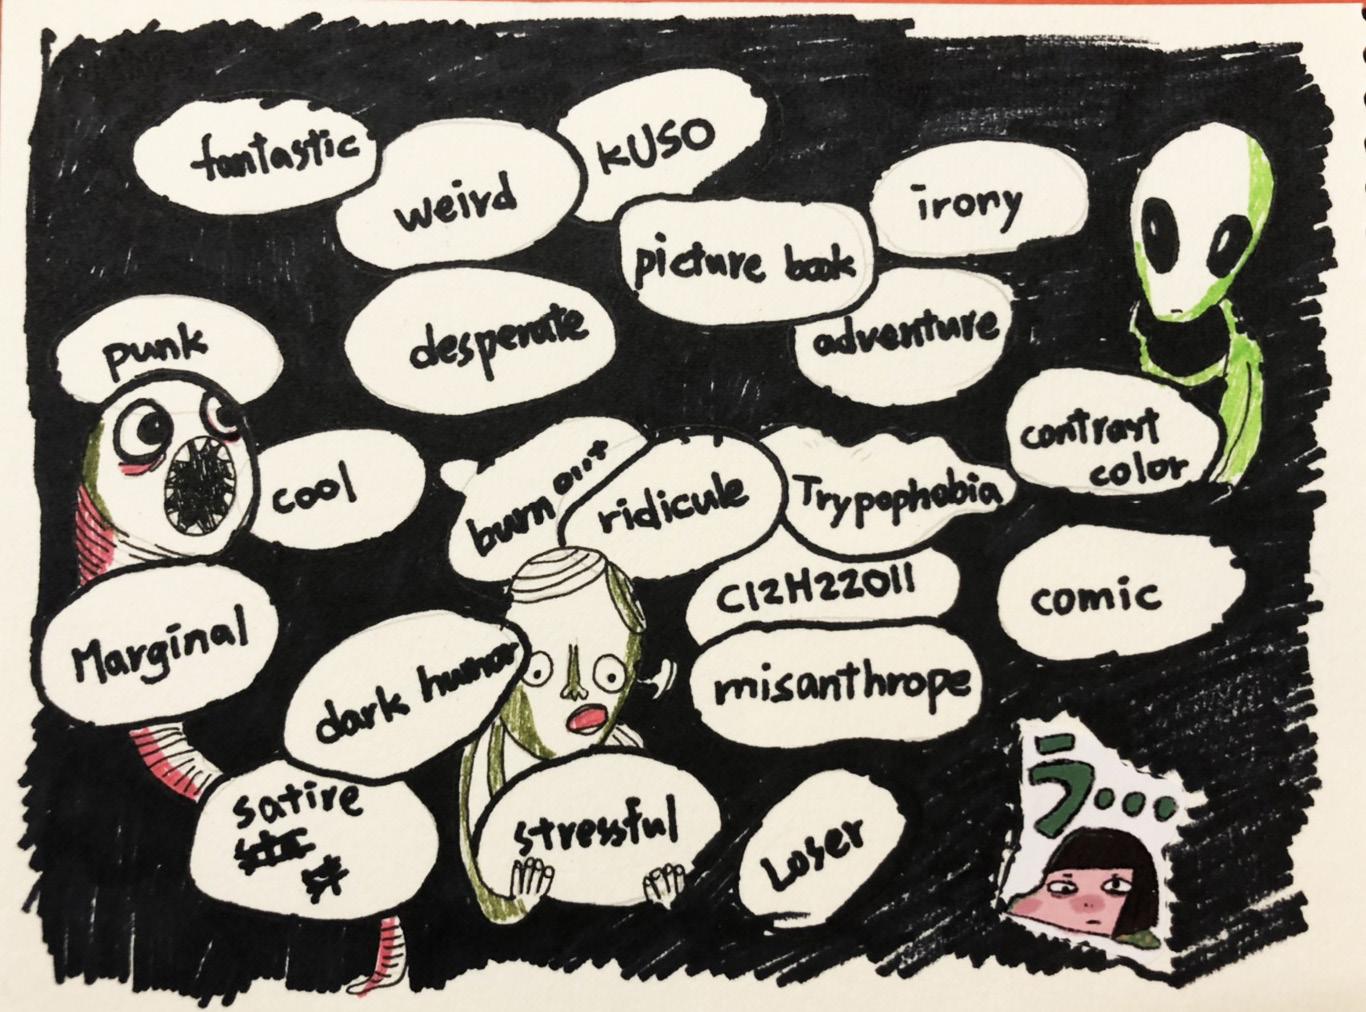 fantastic
weird
KUSO
picture book
irony
punk
desperate
adventure
cool
burn out
ridicule
Trypophobia
contrast
color
C12H22O11
comic
Marginal
dark humor
misanthrope
satire
stressful
Loser
ラ...